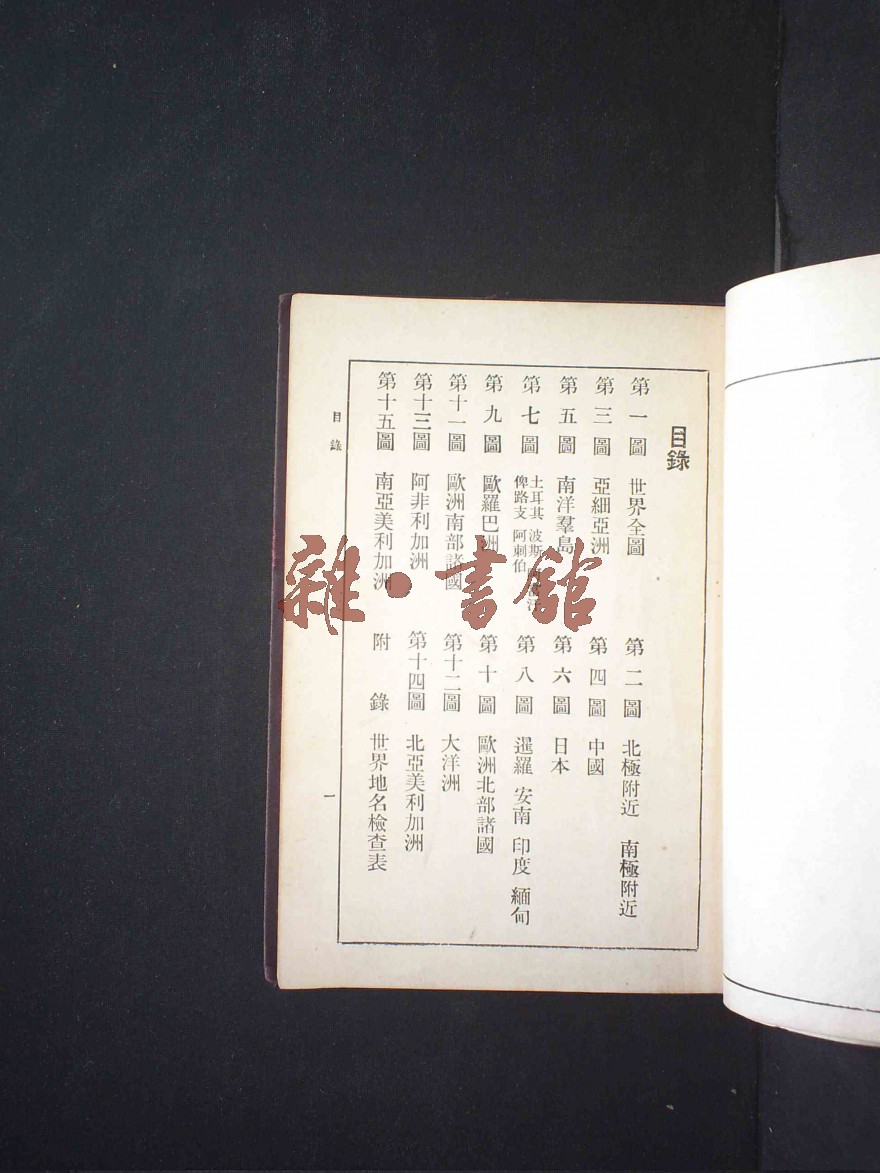 目錄
第一圖 世界全圖
第二圖 北極附近 南極附近
第三圖 亞細亞洲
第四圖 中國
第五圖 南洋羣島
第六圖 日本
第七圖 土耳其 波斯
俾路支 阿剌伯
第八圖 暹羅 安南 印度 緬甸
第九圖 歐羅巴洲
第十圖 歐洲北部諸國
第十一圖 歐洲南部諸國
第十二圖 大洋洲
第十三圖 阿非利加洲
第十四圖 北亞美利加洲
第十五圖 南亞美利加洲
附錄 世界地名檢查表
目錄
一
雜·書館